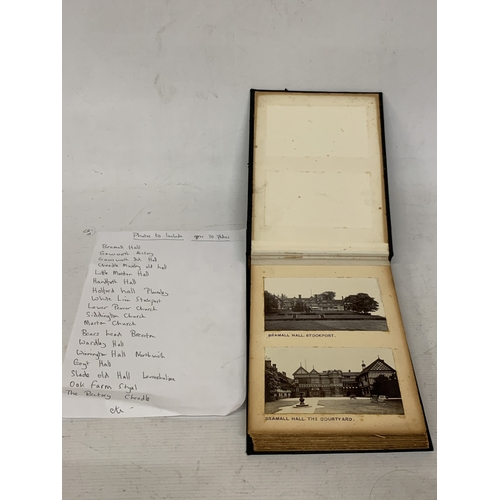 Photos to Include
Bramall Hall
Gawsworth Rectory
Gawsworth Old Hall
Cheadle Moseley old hall
Little Moreton Hall
Handforth Hall
Holford Hall Plumley
White Lion Stockport
Lower Peover Church
Siddington Church
Marton Church
Bears Head Brereton
Wardley Hall
Hall Northwich
Goyt Hall
Slade old Hall Levenshulme
Oak Farm Styal
The Rectory Cheadle
etc
BRAMALL HALL. STOCKPORT.
BRAMALL HALL. THE COURTYARD.